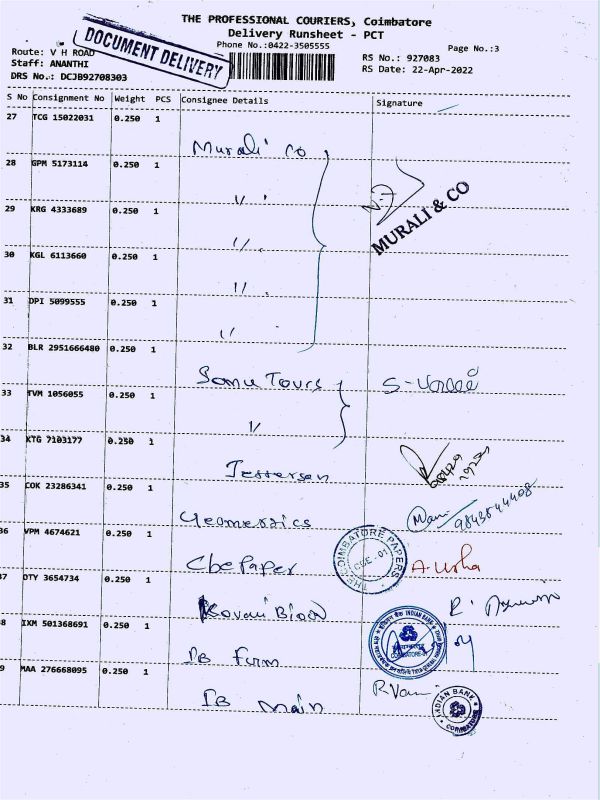 THE PROFESSIONAL COURIERS, Coimbatore
Delivery Runsheet - PCT
Phone No.:0422-3505555
Page No.:3
DOCUMENT DELIVERY
Route: V H ROAD
Staff: ANANTHI
DRS No.: DCJB92708303
RS No.: 927083
RS Date: 22-Apr-2022
S No Consignment No Weight PCS Consignee Details Signature
27 TCG 15022031 0.250 1
Murali Co
28 GPM 5173114 0.250 1
〃
29 KRG 4333689 0.250 1
〃
MURALI & CO
30 KGL 6113660 0.250 1
〃
31 DPI 5099555 0.250 1
〃
32 BLR 2951666480 0.250 1
Somu Tours
33 TVM 1056055 0.250 1
〃
34 KTG 7103177 0.250 1
35 COK 23286341 0.250 1
Geometrics Mani 9843844408
36 VPM 4674621 0.250 1
Cbe Paper THE COIMBATORE PAPERS CBE-01 A. Usha
37 OTY 3654734 0.250 1
38 IXM 501368691 0.250 1
IB Firm INDIAN BANK
39 MAA 276668095 0.250 1
IB main R. Vani INDIAN BANK COIMBATORE